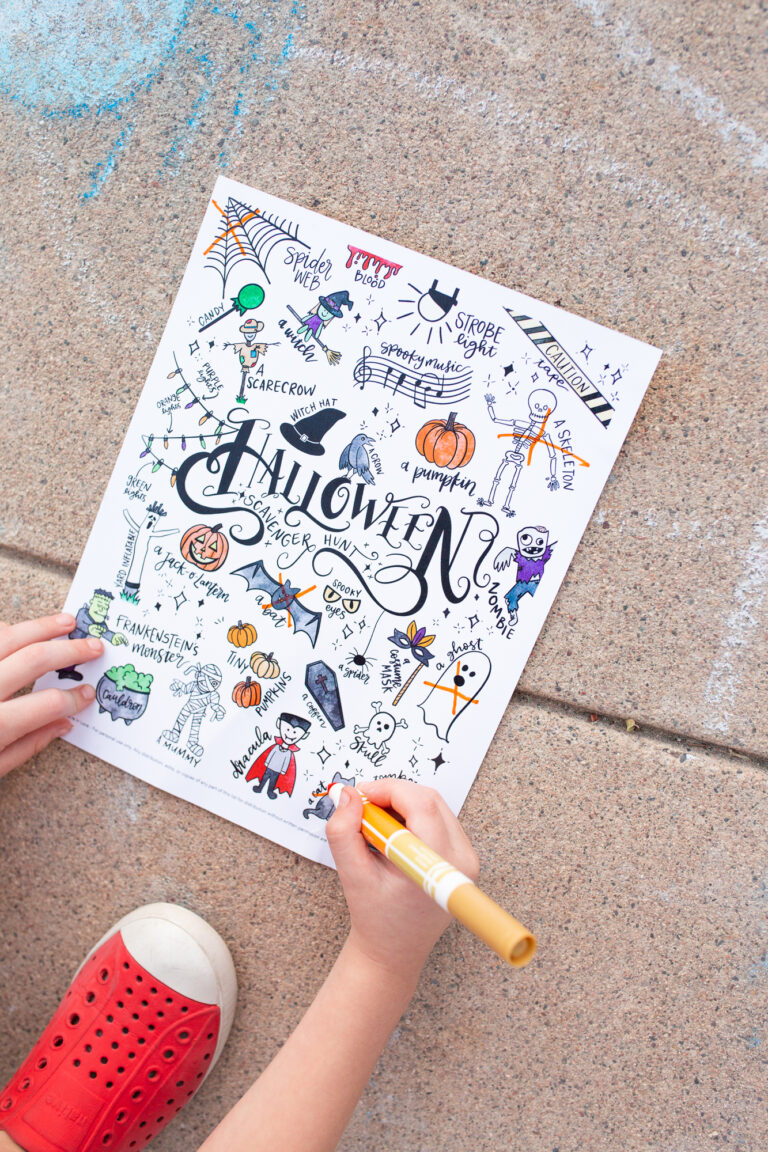 Spider
WEB
BLOOD
STROBE
light
CAUTION
tape
CANDY
a witch
A
SCARECROW
spooky music
PURPLE
lights
ORANGE
lights
WITCH HAT
A CROW
a pumpkin
A SKELETON
HALLOWEEN
SCAVENGER HUNT
GREEN
lights
YARD INFLATABLE
a
jack o'lantern
a bat
SPOOKY
eyes
ZOMBIE
FRANKENSTEIN'S
monster
TINY
PUMPKINS
a spider
a
COSTUME
MASK
a ghost
Cauldron
a
MUMMY
a coffin
Dracula
Skull
a cat